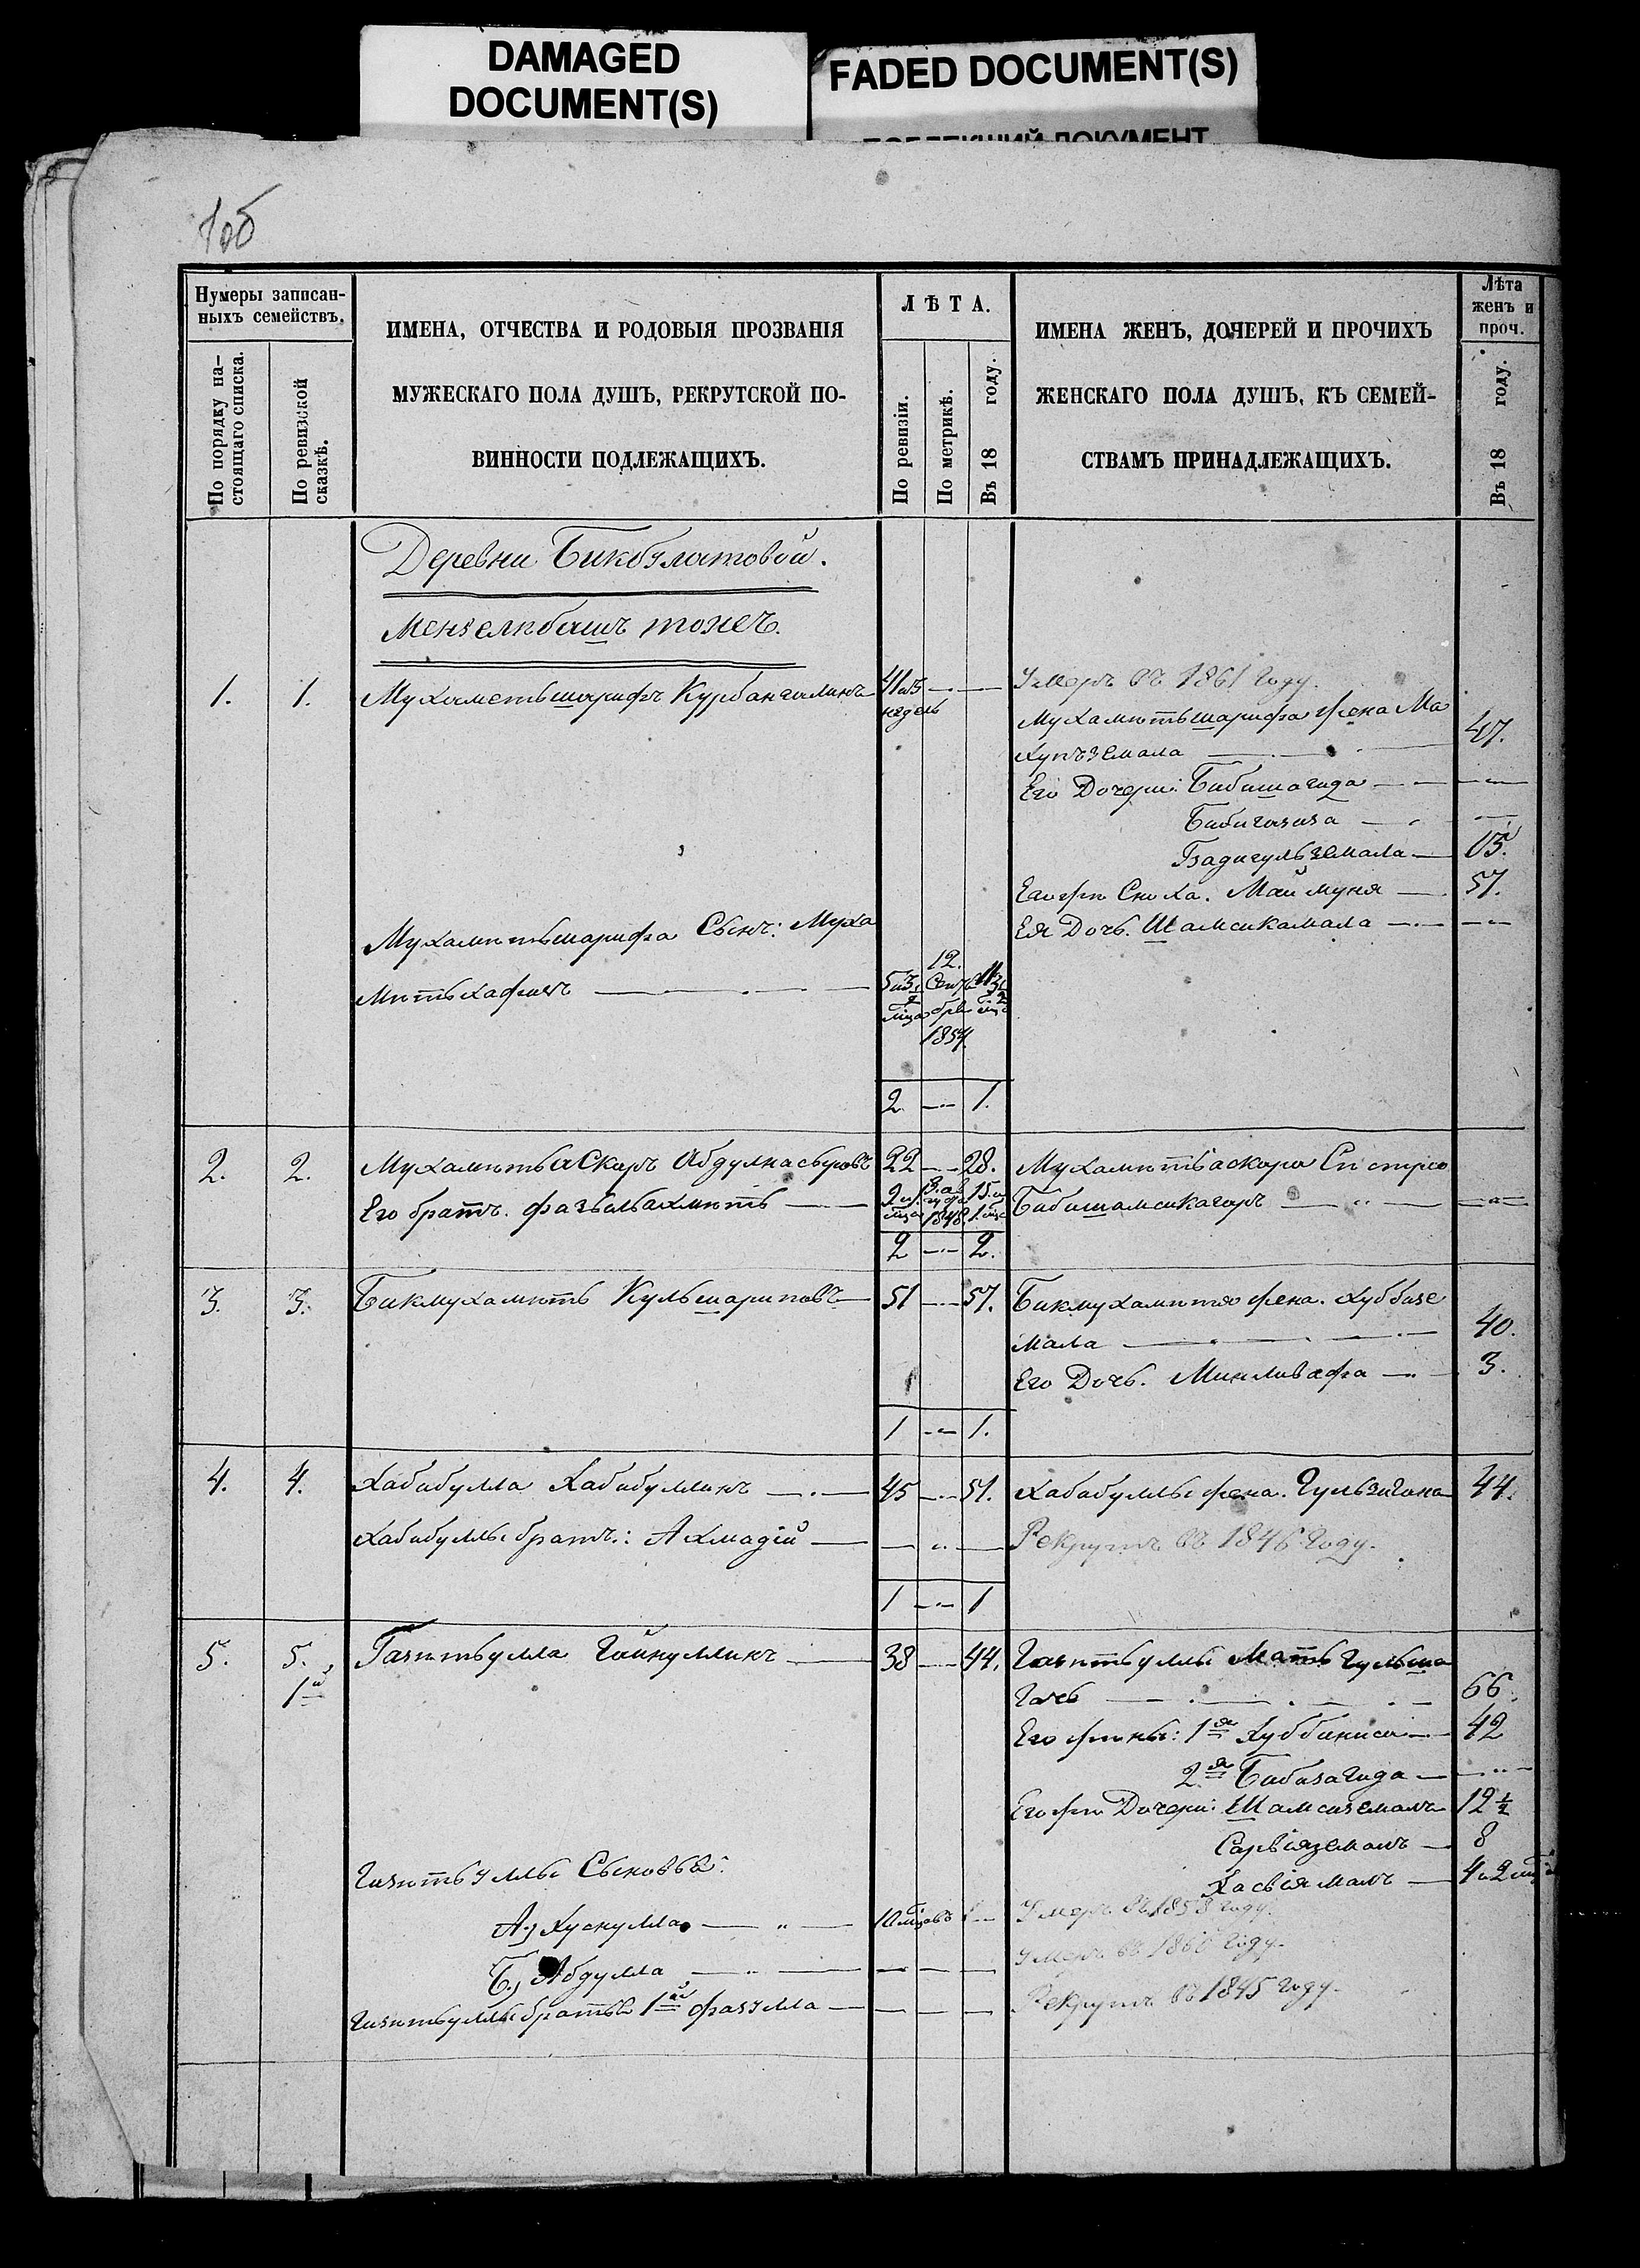 DAMAGED
DOCUMENT(S)
FADED DOCUMENT(S)
Нумеры записан-
ныхъ семействъ.
По порядку на-
стоящаго списка.
По ревизской
сказкѣ.
ИМЕНА, ОТЧЕСТВА И РОДОВЫЯ ПРОЗВАНІЯ
МУЖЕСКАГО ПОЛА ДУШЪ, РЕКРУТСКОЙ ПО-
ВИННОСТИ ПОДЛЕЖАЩИХЪ.
ЛѢТА.
По ревизіи.
По метрикѣ.
Въ 18 году.
ИМЕНА ЖЕНЪ, ДОЧЕРЕЙ И ПРОЧИХЪ
ЖЕНСКАГО ПОЛА ДУШЪ, КЪ СЕМЕЙ-
СТВАМЪ ПРИНАДЛЕЖАЩИХЪ.
Лѣта
женъ и
проч.
Въ 18 году.
Деревни Бикбулатовой.
Мензелнбашъ тожъ.
1. 1. Мухаметьшарифъ Курбангалинъ 41 Умеръ въ 1861 году.
недель
Мухаметьшарифа жена Ма
хупъземала 47.
Его Дочери: Бибишагида
Бибигазиза
Бадигульземала 13.
Его же Сноха. Маймуня 57.
Ея Дочь. Шамсикамала
Мухаметьшарифа Сынъ: Муха
метьхафизъ 12. Сентября 1854.
2 1.
2. 2. Мухаметьаскаръ Абдулнасыровъ 22 28. Мухаметьаскара Сестра
Его братъ. Фазылъахметь 1848 Бибишамсикагаръ
2 2.
3. 3. Бикмухаметь Кульшариповъ 51 57. Бикмухаметя жена. Хуббизе
мала 40.
Его Дочь. Минливафа 3.
1 1.
4. 4. Хабибулла Хабибуллинъ 45 51. Хабибуллы жена. Гульзигана 44.
Хабибуллы братъ: Ахмадій Рекрутъ въ 1846 году.
1 1
5. 5. Гизетьулла Гайнуллинъ 38 44. Гизетьуллы Мать Гульша
1й гачь 66.
Его жены: 1я Хуббиниса 42
2я Бибизагида
Его же Дочери: Шамсиземалъ 12 ½
Сарвіяземалъ 8
Хасвіямалъ 4 и 2
Гизетьуллы Сыновья:
А, Хуснулла 10 Умеръ въ 1858 году.
Б, Абдулла Умеръ въ 1860 году.
Гизетьуллы братья 1й Фазулла Рекрутъ въ 1845 году.